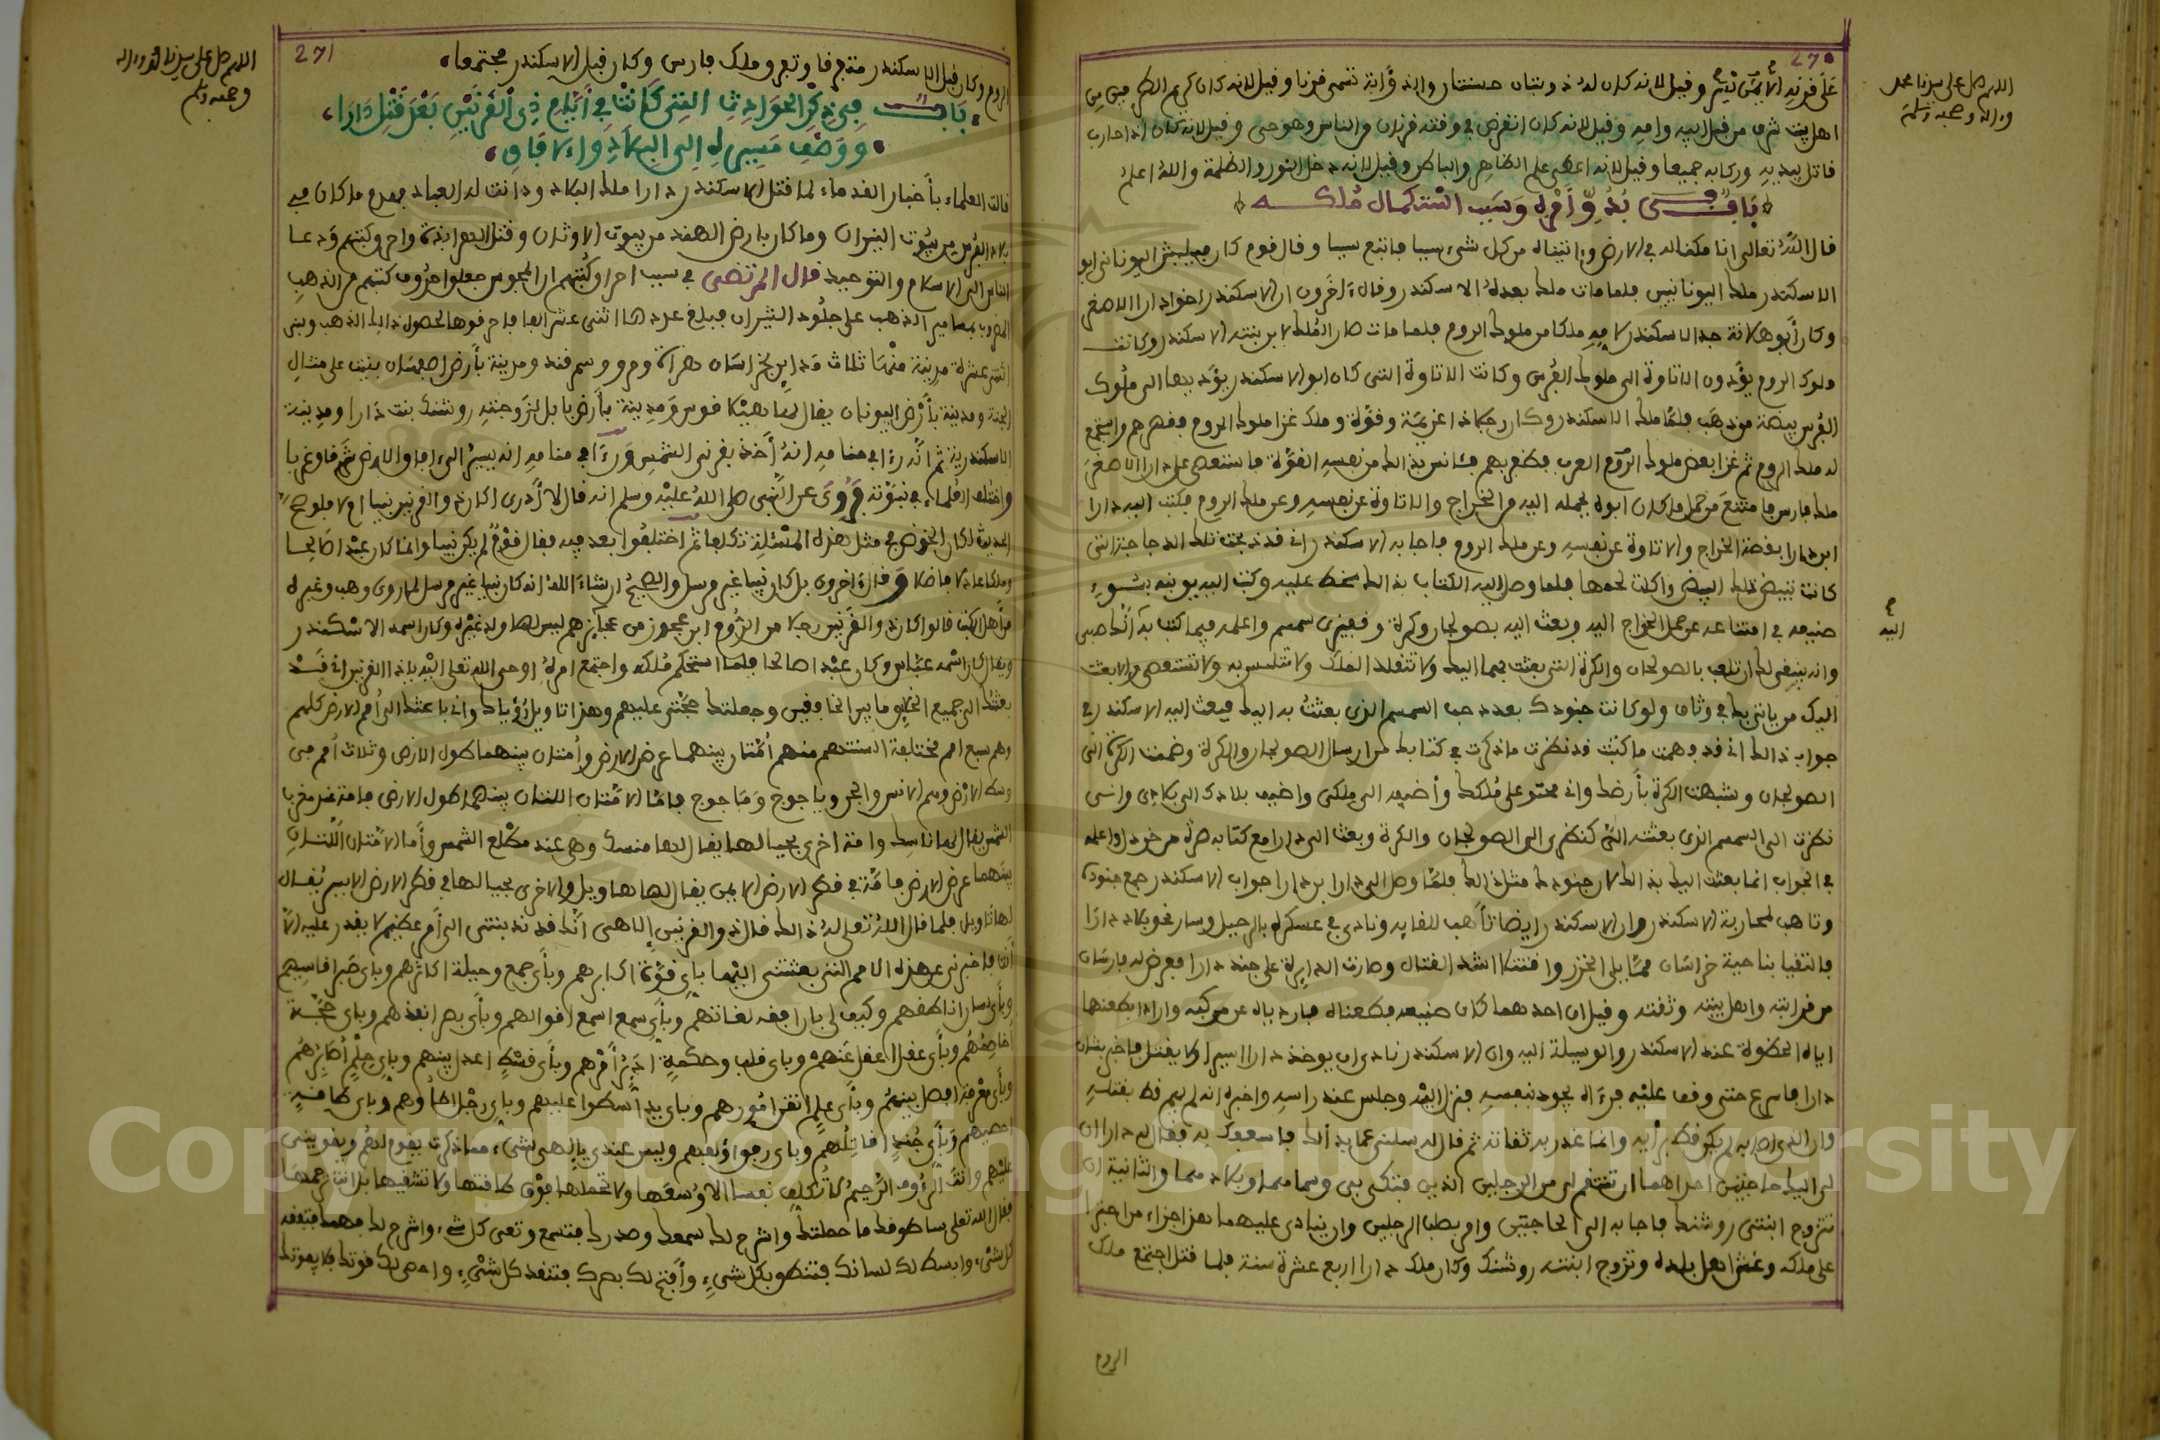 270
اللهم صل على سيدنا محمد
وءاله وصحبه وسلم
على قرنه الأيمن وقيل لانه كان له ذؤبتان حسنتان والذؤابة تسمى قرنا وقيل لانه كان كريم الطرفين من
اهل بيت شرف من قبل ابيه وامه وقيل لانه كان انقرض في وقته قرنان من الناس وهو حي وقيل لانه كان اذا حارب
قاتل بيديه وركابه جميعا وقيل لانه اعطى علم الظاهر والباطن وقيل لانه دخل النور والظلمة والله اعلم
باب في بدو أمره وسبب استكمال ملكه
قال الله تعالى انا مكنا له في الارض وءاتيناه من كل شيء سببا فاتبع سببا وقال قوم كان فيلبش اليوناني ابو
الاسكندر ملك اليونانيين فلما مات ملك بعده الاسكندر وقال ءاخرون ان الاسكندر اخو دارا الاصغر
وكان أبو هلانة جد الاسكندر لامه ملكا من ملوك الروم فلما مات صار الملك لابن بنته الاسكندر وكانت
ملوك الروم يؤدون الاتاوة الى ملوك الفرس وكانت الاتاوة التي كان ابو الاسكندر يؤديها الى ملوك
الفرس بيضة من ذهب فلما ملك الاسكندر وكان رجلا ذا عزيمة وقوة وملك غزا ملوك الروم فقهرهم واجتمع
له ملك الروم ثم غزا بعض ملوك الروم العرب فظفر بهم فئانس بذالك من نفسه القوة فاستعصى على دارا الاصغر
ملك فارس فامتنع من حمل ما كان ابوه يحمله اليه من الخراج والاتاوة عن نفسه وعن ملك الروم فكتب اليه دارا
ابن دارا بقصة الخراج والاتاوة عن نفسه وعن ملك الروم فاجابه الاسكندر اني قد ذبحت تلك الدجاجة التي
كانت تبيض تلك البيض واكلت لحمها فلما وصل اليه الكتاب بذالك سخط عليه وكتب اليه يونبه بسوء
صنيعه في امتناعه عن حمل الخراج اليه وبعث اليه بصولجان وكرة وقفيزى سمسم واعلمه فيما كتب به أنك صبي
وانه ينبغي لك ان تلعب بالصولجان والكرة التي بعثت بهما اليك ولا تتقلد الملك ولا تتلبس به ولا تستعصى والا بعثت
اليه
اليك من ياتني بك في وثاق ولو كانت جنودك بعدد حب السمسم الذي بعثت به اليك فبعث اليه الاسكندر في
جواب ذالك اني قد فهمت ما كتبت وقد نظرت ما ذكرت في كتابك من ارسال الصولجان والكرة وضمت الكرة الى
الصولجان وشبهت الكرة بأرضك واني محتو على ملكك وأضيفه الى ملكي واضيف بلادك الى بلادي واني
نظرت الى السمسم الذي بعثت الي كنظري الى الصولجان والكرة وبعث الى دارا مع كتابه صرة من خردل واعلمه
في الجواب انما بعثت اليك بذالك لان جنودك مثل ذالك فلما وصل الى دارا بن دارا جواب الاسكندر جمع جنوده
وتاهب لمحاربة الاسكندر وان الاسكندر ايضا تأهب للقايه ونادى في عسكره بالرحيل وسار نحو بلاد دارا
فالتقيا بناحية خراسان مما يلي الخزر واقتتلا اشد القتال وصارت الدايرة على جند دارا فعرض له فارسان
من قرابته واهل بيته وثقته وقيل ان احدهما كان صنيعه فطعناه فارديا به عن مركبه وارادا بطعنهما
اياه الحظوة عند الاسكندر والوسيلة اليه وان الاسكندر نادى ان يوخذ دارا اسيرا ولا يقتل فاخبر بشان
دارا فاسرع حتى وقف عليه فرءاه يجود بنفسه فنزل اليه وجلس عند راسه واخبره انه لم يهم قط بقتله
وان الذي اصابه لم يكن قط برأيه وانما غدر به ثقاته ثم قال له سلني عما بدا لك فاسعفك به فقال له دارا ان
لي اليك حاجتين احداهما ان تنتقم لي من الرجلين الذين فتكا بي وسماهما وبلادهما والثانية ان
تتزوج ابنتي روشنك فاجابه الى الحاجتين وامر بصلب الرجلين وان ينادى عليهما هذا جزاء من اجترا
على ملكه وغش اهل بلده وتزوج ابنته روشنك وكان ملك دارا اربع عشرة سنة فلما قتل اجتمع ملك
الروم
271
اللهم صل على سيدنا محمد وءاله
وصحبه وسلم
الروم وكان قبل الاسكندر متفرقا وتفرق ملك فارس وكان قبل الاسكندر مجتمعا
باب في ذكر الحوادث التي كانت في أيام ذي القرنين بعد قتل دارا
ووصف مسيره إلى البلاد والآفاق
قالت العلماء بأخبار القدماء لما قتل الاسكندر دارا ملك البلاد ودانت له العباد فهدم ما كان في
بلاد الفرس من بيوت النيران وما كان بارض الهند من بيوت الاوثان وقتل الهرابذة واحرق كتبهم ودعا
الناس الى الاسلام والتوحيد قال المرتضى في سبب احراق كتبهم ان المجوس جعلوا حروف كتبهم من الذهب
المضروب بمسامير الذهب على جلود الثيران فبلغ عددها اثنى عشر الفا فاحرقوها لحصول ذالك الذهب وبنى
اثنتى عشرة مدينة منها ثلاث مداين بخراسان هراة ومرو وسمرقند ومدينة بأرض اصبهان بنيت على مثال
الجنة ومدينة بأرض اليونان يقال لها هيلاقوس ومدينة بأرض بابل لزوجته روشنك بنت دارا ومدينة
الاسكندرية ثم انه رءا في منامه انه أخذ بقرني الشمس ورءا في منامه انه يسير الى ءافاق الارض شرقا وغربا
واختلف العلماء في نبوته فروى عن النبي صلى الله عليه وسلم انه قال لا أدري اكان ذو القرنين نبيا ام لا فلو صح
الحديث لكان الخوض في مثل هذه المسئلة تكلفا ثم اختلفوا بعد فيه فقال قوم لم يكن نبيا وانما كان عبدا صالحا
وملكا عادلا فاضلا وقال ءاخرون بل كان نبيا غير مرسل والصحيح ان شاء الله انه كان نبيا غير مرسل لما روى وهب وغيره
من أهل الكتب قالوا كان ذو القرنين رجلا من الروم ابن عجوز من عجايزهم ليس لها ولد غيره وكان اسمه الاسكندر
ويقال كان اسمه عياش وكان عبدا صالحا فلما استحكم ملكه واجتمع امره اوحى الله تعالى اليه ياذا القرنين اني قد
بعثتك الى جميع الخلق ما بين الخافقين وجعلتك حجتي عليهم وهذا تاويل رؤياك واني باعثك الى أمم الارض كلهم
وهم سبع امم مختلفة ألسنتهم منهم أمتان بينهما عرض الارض وأمتان بينهما طول الارض وثلاث أمم في
وسط الارض وهم الانس والجن وياجوج وماجوج فاما الامتان اللتان بينهما طول الارض فامة عند مغرب
الشمس يقال لها ناسك وامة اخرى بحيالها يقال لها منسك وهي عند مطلع الشمس وأما الامتان اللتان
بينهما عرض الارض فامة في قطر الارض الايمن يقال لها هاويل والاخرى بحيالها في قطر الارض الايسر يقال
لها تاويل فلما قال الله تعالى له ذالك قال ذو القرنين إلاهي انك قد ندبتني الى أمر عظيم لا يقدر عليه الا
أنت فاخبرني عن هذه الامم التي بعثتني اليها بأي قوة اكابرهم وبأي جمع وحيلة اكاثرهم وبأي صبر اقاسيهم
وبأي لسان اناطقهم وكيف لي بان افقه لغاتهم وبأي سمع اسمع اقوالهم وبأي بصر انقذهم وبأي حجة
اخاصمهم وبأي عقل اعقل عنهم وبأي قلب وحكمة ادبر أمرهم وبأي قسط اعدل بينهم وبأي حلم أصابرهم
وبأي معرفة افصل بينهم وبأي علم اتقن امورهم وبأي يد أسطوا عليهم وبأي رجل اطأوهم وبأي طاقة
احصيهم وبأي جند اقاتلهم وبأي رفق اؤلفهم وليس عندي يا إلهي شيء مما ذكرت يقوم لهم ويقويني
عليهم وانت الرؤوف الرحيم لا تكلف نفسا الا وسعها ولا تحملها فوق طاقتها ولا تشقيها بل انت ترحمها
فقال الله تعالى ساطوقك ما حملتك واشرح لك سمعك وصدرك فتسمع وتعى كل شيء واشرح لك فهمك فتفقه
كل شيء وابسط لك لسانك فتنطق بكل شيء وأفتح لك بصرك فتنفذ كل شيء واحصى لك قوتك فلا يفوتك
Copyright © King Saud University